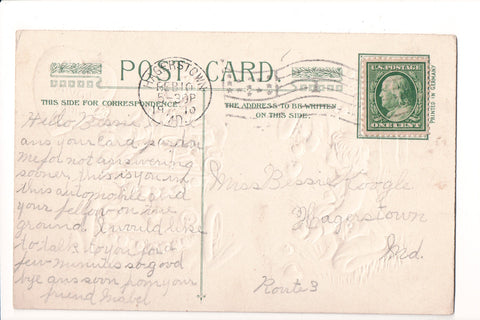 POST CARD.
THIS SIDE FOR CORRESPONDENCE.
THE ADDRESS TO BE WRITTEN
ON THIS SIDE.
HAGERSTOWN
FEB 10
MD.
U.S. POSTAGE
ONE CENT
PRINTED IN GERMANY
Hello Bessie
ans your card pardon
me for not answering
sooner, this is you in
this automobile and
your fellow on the
ground. I would like
to talk to you for a
few minutes so good
bye ans soon from your
friend Mabel
Miss Bessie Koogle
Hagerstown
Md.
Route 3